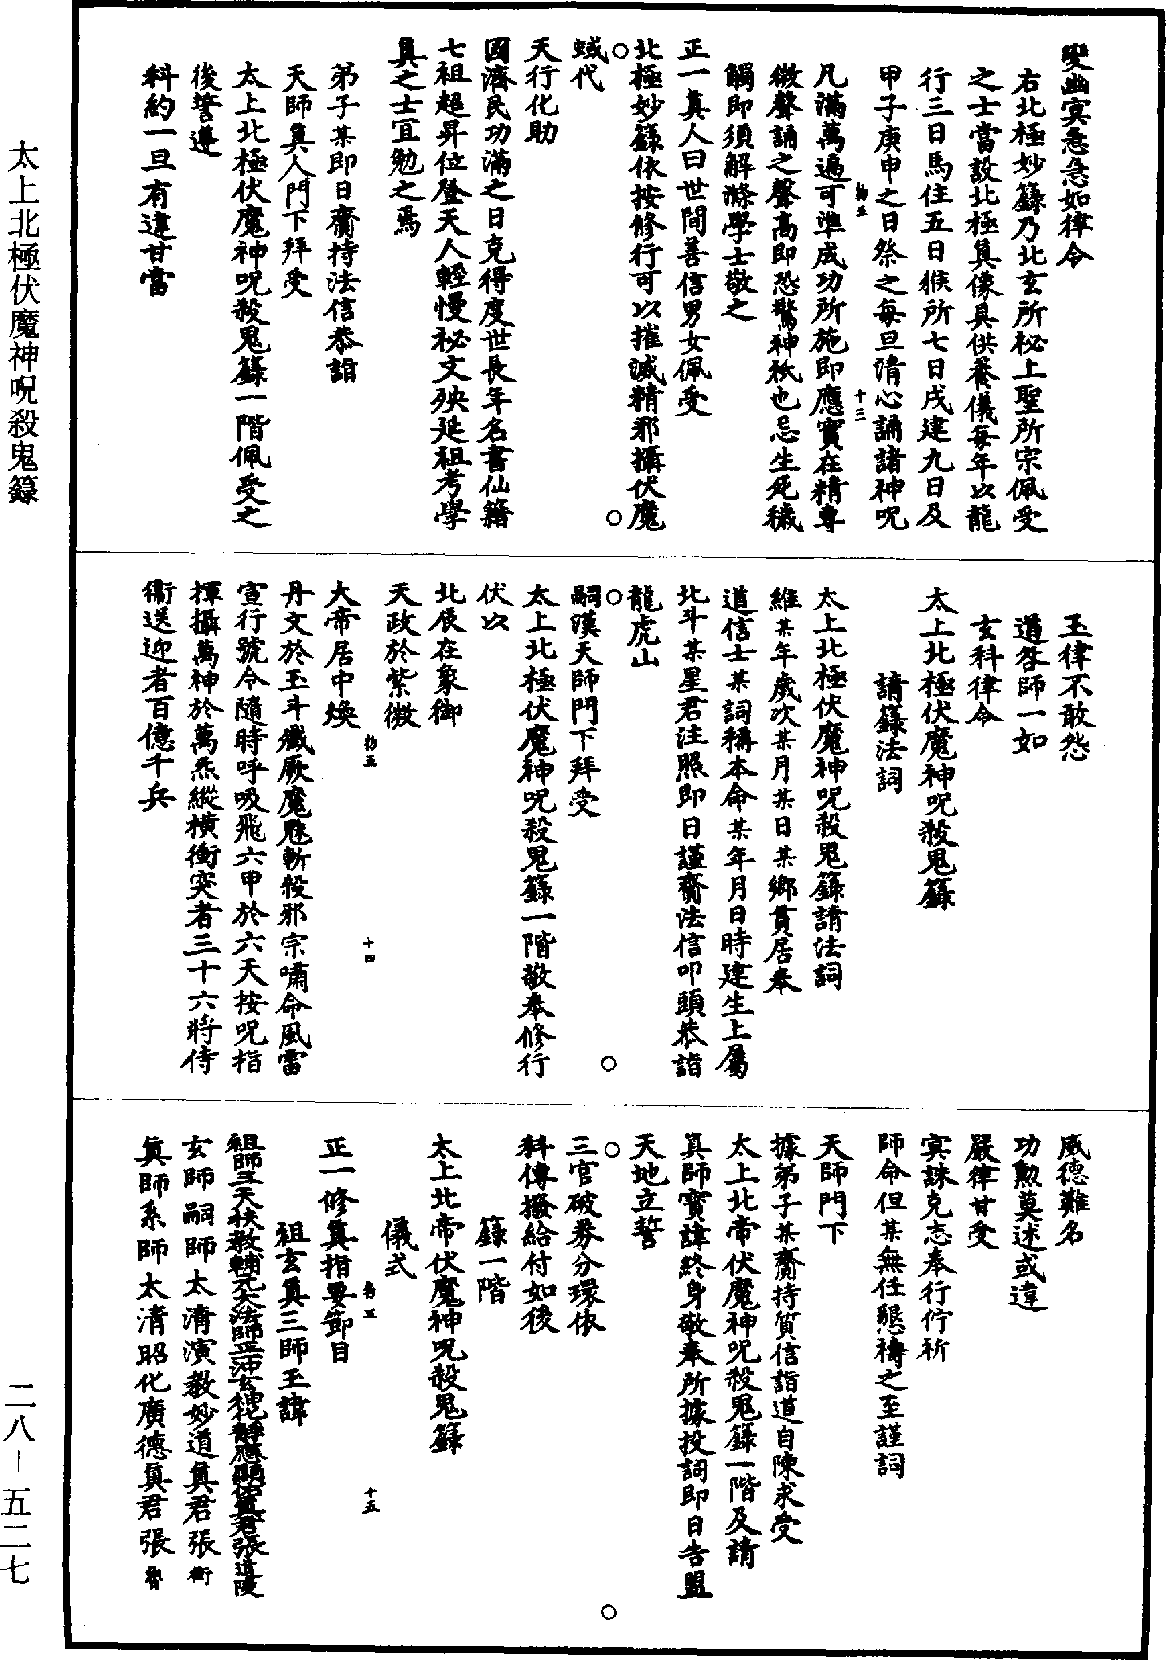 變幽冥急急如律令
右北極妙籙乃北玄所祕上聖所宗佩受
之士當設北極真像具供養儀每年以龍
行三日馬住五日猴所七日戌建九日及
甲子庚申之日祭之每旦清心誦諸神呪
凡滿萬遍可準成功所施即應實在精專
微聲誦之聲高即恐驚神祇也忌生死穢
觸即須解滌學士敬之
正一真人曰世間善信男女佩受
北極妙籙依按修行可以摧滅精邪攝伏魔
蜮代
天行化助
國濟民功滿之日克得度世長年名書仙籍
七祖超昇位登天人輕慢祕文殃延祖考學
真之士宜勉之焉
弟子某即日齎持法信恭詣
天師真人門下拜受
太上北極伏魔神呪殺鬼籙一階佩受之
後誓遵
科約一旦有違甘當
玉律不敢怨
道咎師一如
玄科律令
太上北極伏魔神呪殺鬼籙
請籙法詞
太上北極伏魔神呪殺鬼籙請法詞
維某年歲次某月某日某鄉貫居奉
道信士某詞稱本命某年月日時建生上屬
北斗某星君注照即日謹齎法信叩頭恭詣
龍虎山
嗣漢天師門下拜受
太上北極伏魔神呪殺鬼籙一階敬奉修行
伏以
北辰在象御
天政於紫微
大帝居中煥
丹文於玉斗殲厥魔魅斬殺邪宗嘯命風雷
宣行號令隨時呼吸飛六甲於六天按呪指
揮攝萬神於萬炁縱橫衝突者三十六將侍
衛送迎者百億千兵
威德難名
功勲莫述或違
嚴律甘受
冥誅克志奉行佇祈
師命但某無任懇禱之至謹詞
天師門下
據弟子某齎持質信詣道自陳求受
太上北帝伏魔神呪殺鬼籙一階及請
真師寶諱終身敬奉所據投詞即日告盟
天地立誓
三官破券分環依
科傳撥給付如後
籙一階
太上北帝伏魔神呪殺鬼籙
儀式
正一修真指要節目
祖玄真三師玉諱
祖師三天扶教輔元大法師正一沖玄神化靜應顯佑真君張道陵
玄師嗣師太清演教妙道真君張衡
真師系師太清昭化廣德真君張魯
太上北極伏魔神呪殺鬼籙
二八－五二七